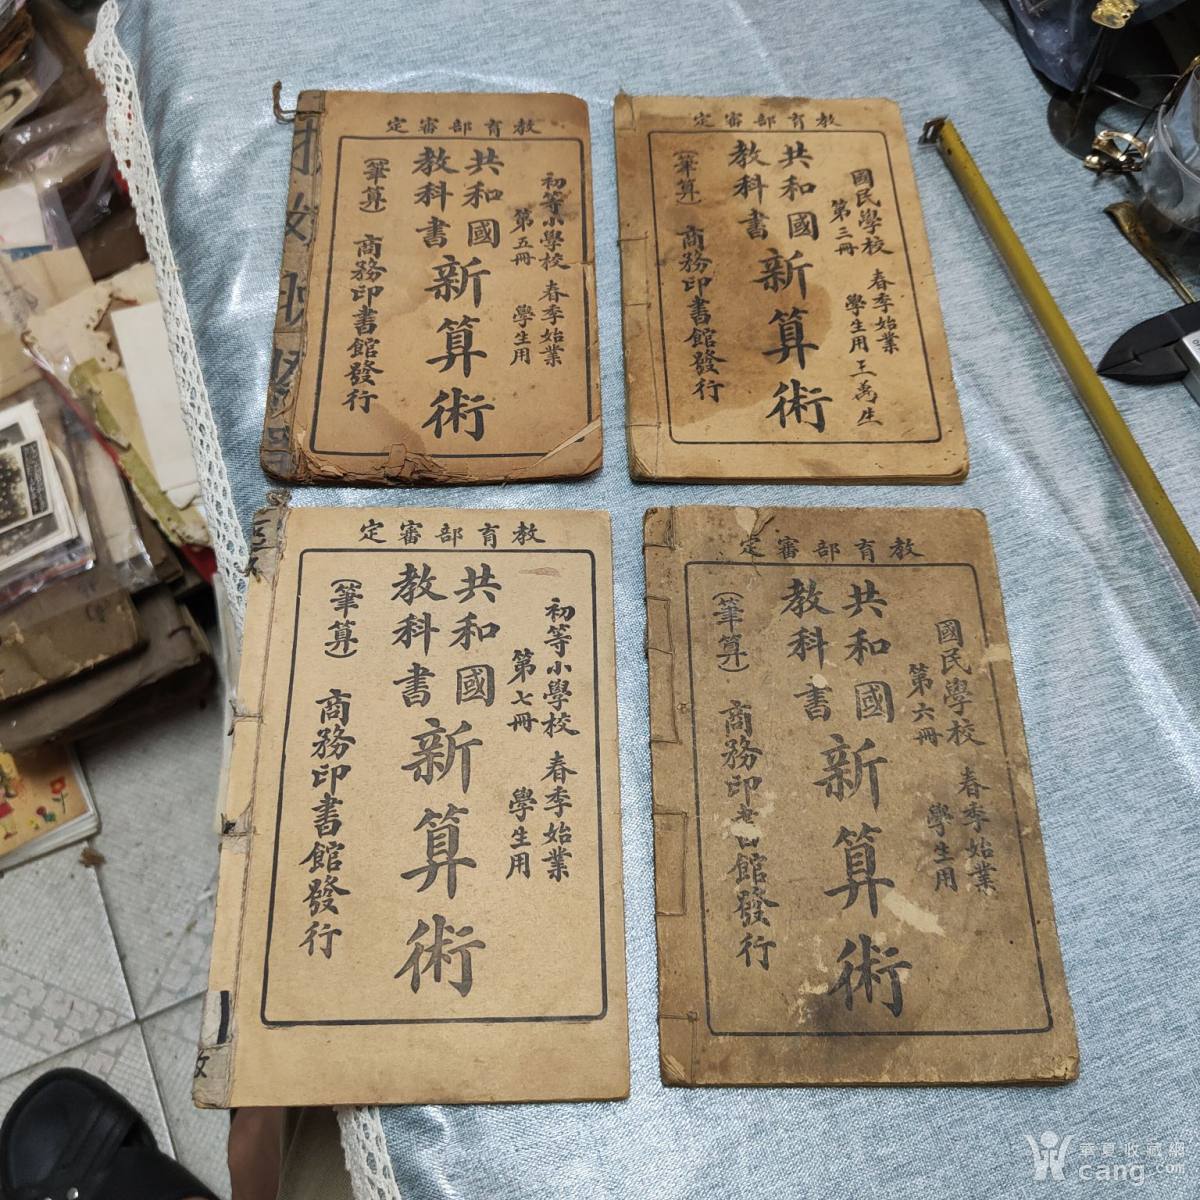 教育部審定
初等小學校 春季始業
第五冊 學生用
共和國
教科書
新算術
(筆算)
商務印書館發行
教育部審定
國民學校 春季始業
第三冊 學生用 王萬生
共和國
教科書
新算術
(筆算)
商務印書館發行
教育部審定
初等小學校 春季始業
第七冊 學生用
共和國
教科書
新算術
(筆算)
商務印書館發行
教育部審定
國民學校 春季始業
第六冊 學生用
共和國
教科書
新算術
(筆算)
商務印書館發行
華夏收藏網
cang.com